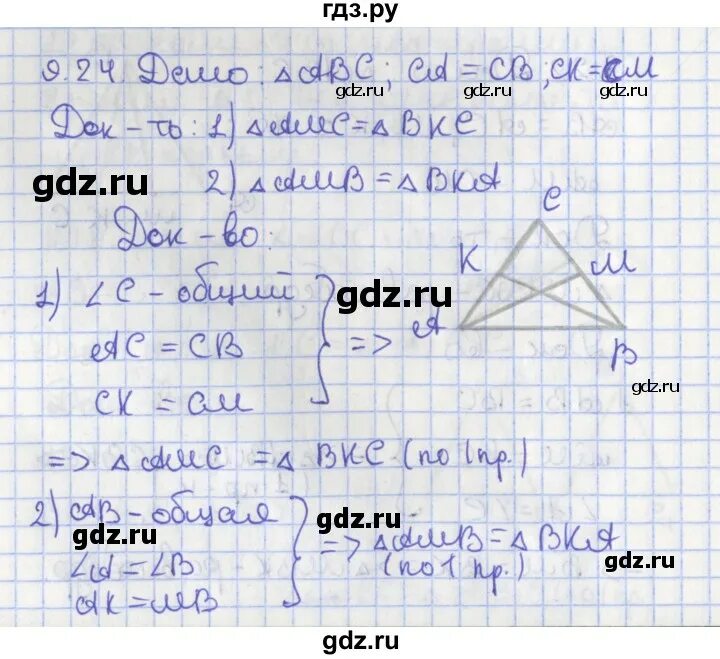 гдз.ру
9.24. Дано: △ABC; CA = CB; CK = CM
gdz.ru gdz.ru
Док-ть: 1) △AMC = △BKC
gdz.ru
2) △AMB = △BKA
Док-во:
C
K
M
A
B
1) ∠C - общий
gdz.ru
AC = CB
CK = CM
=>
=> △AMC = △BKC (по 1 пр.)
2) AB - общая
gdz.ru
gdz.ru
∠A = ∠B
AK = MB
=> △AMB = △BKA
gdz.ru
(по 1 пр.)
gdz.ru
gdz.ru